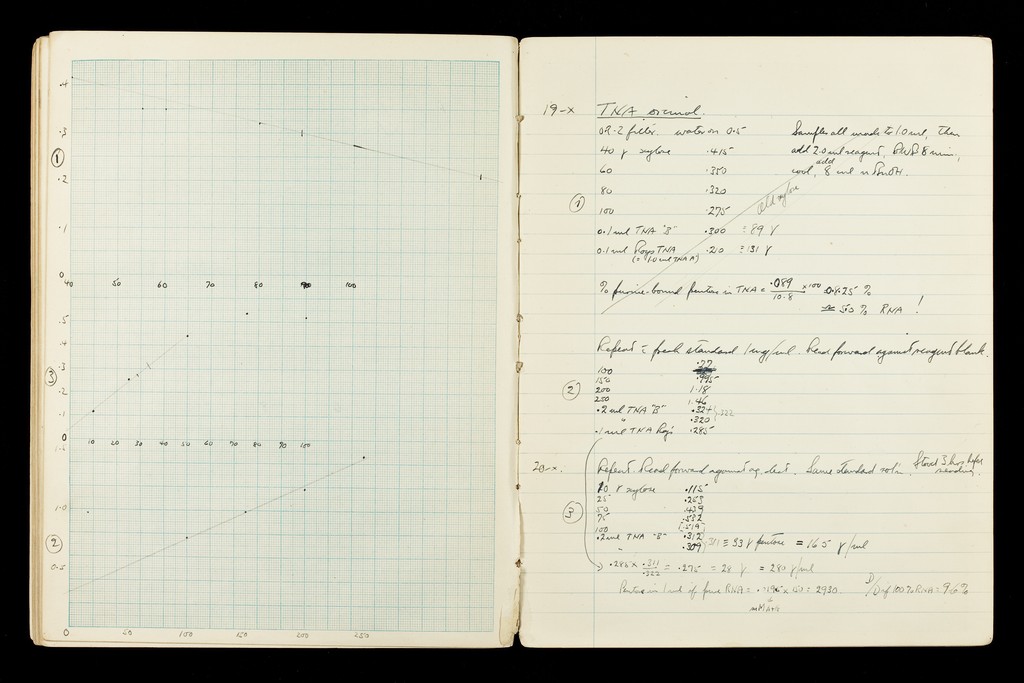 .4
.3
①
.2
.1
0
40 50 60 70 80 90 100
.5
.4
.3
③
.2
.1
0
10 20 30 40 50 60 70 80 90 100
1.0
②
0.5
0 50 100 150 200 250
19-x TNA orcinol.
OR-2 filter. water on 0.5
Samples all made to 1.0 ml, then
40 γ xylose .415
add 2.0 ml reagent, BWB 8 min,
add
60 .350
cool, 8 ml n BuOH.
80 .320
Old xylose
① 100 .275
0.1 ml TNA "B" .300 ≡ 89 γ
0.1 ml Roys TNA .210 ≡ 131 γ
(= 1.0 ml TNA A)
% purine-bound pentose in TNA = .089 / 10.8 × 100 0.8.25 %
≃ 50 % RNA !
Repeat c̄ fresh standard 1 mg/ml. Read forward against reagent blank.
.77
100
150 .995
② 200 1.18
250 1.46
.2 ml TNA "B" .324 .322
" .320
.1 ml TNA Roy's .285
20-x. Repeat. Read forward against ag. test. Same standard sol'n. Stood 3 hrs before
reading.
10 γ xylose .115
25 .253
50 .439
③ 75 .532
100 (.519)
.2 ml TNA "B" .312
" .309 .311 ≡ 33 γ pentose = 165 γ/ml
.285 × .311/.322 = .275 = 28 γ = 280 γ/ml
Pentose in 1 mol of pure RNA = 2930.
P/D of 100% RNA = 9.6%